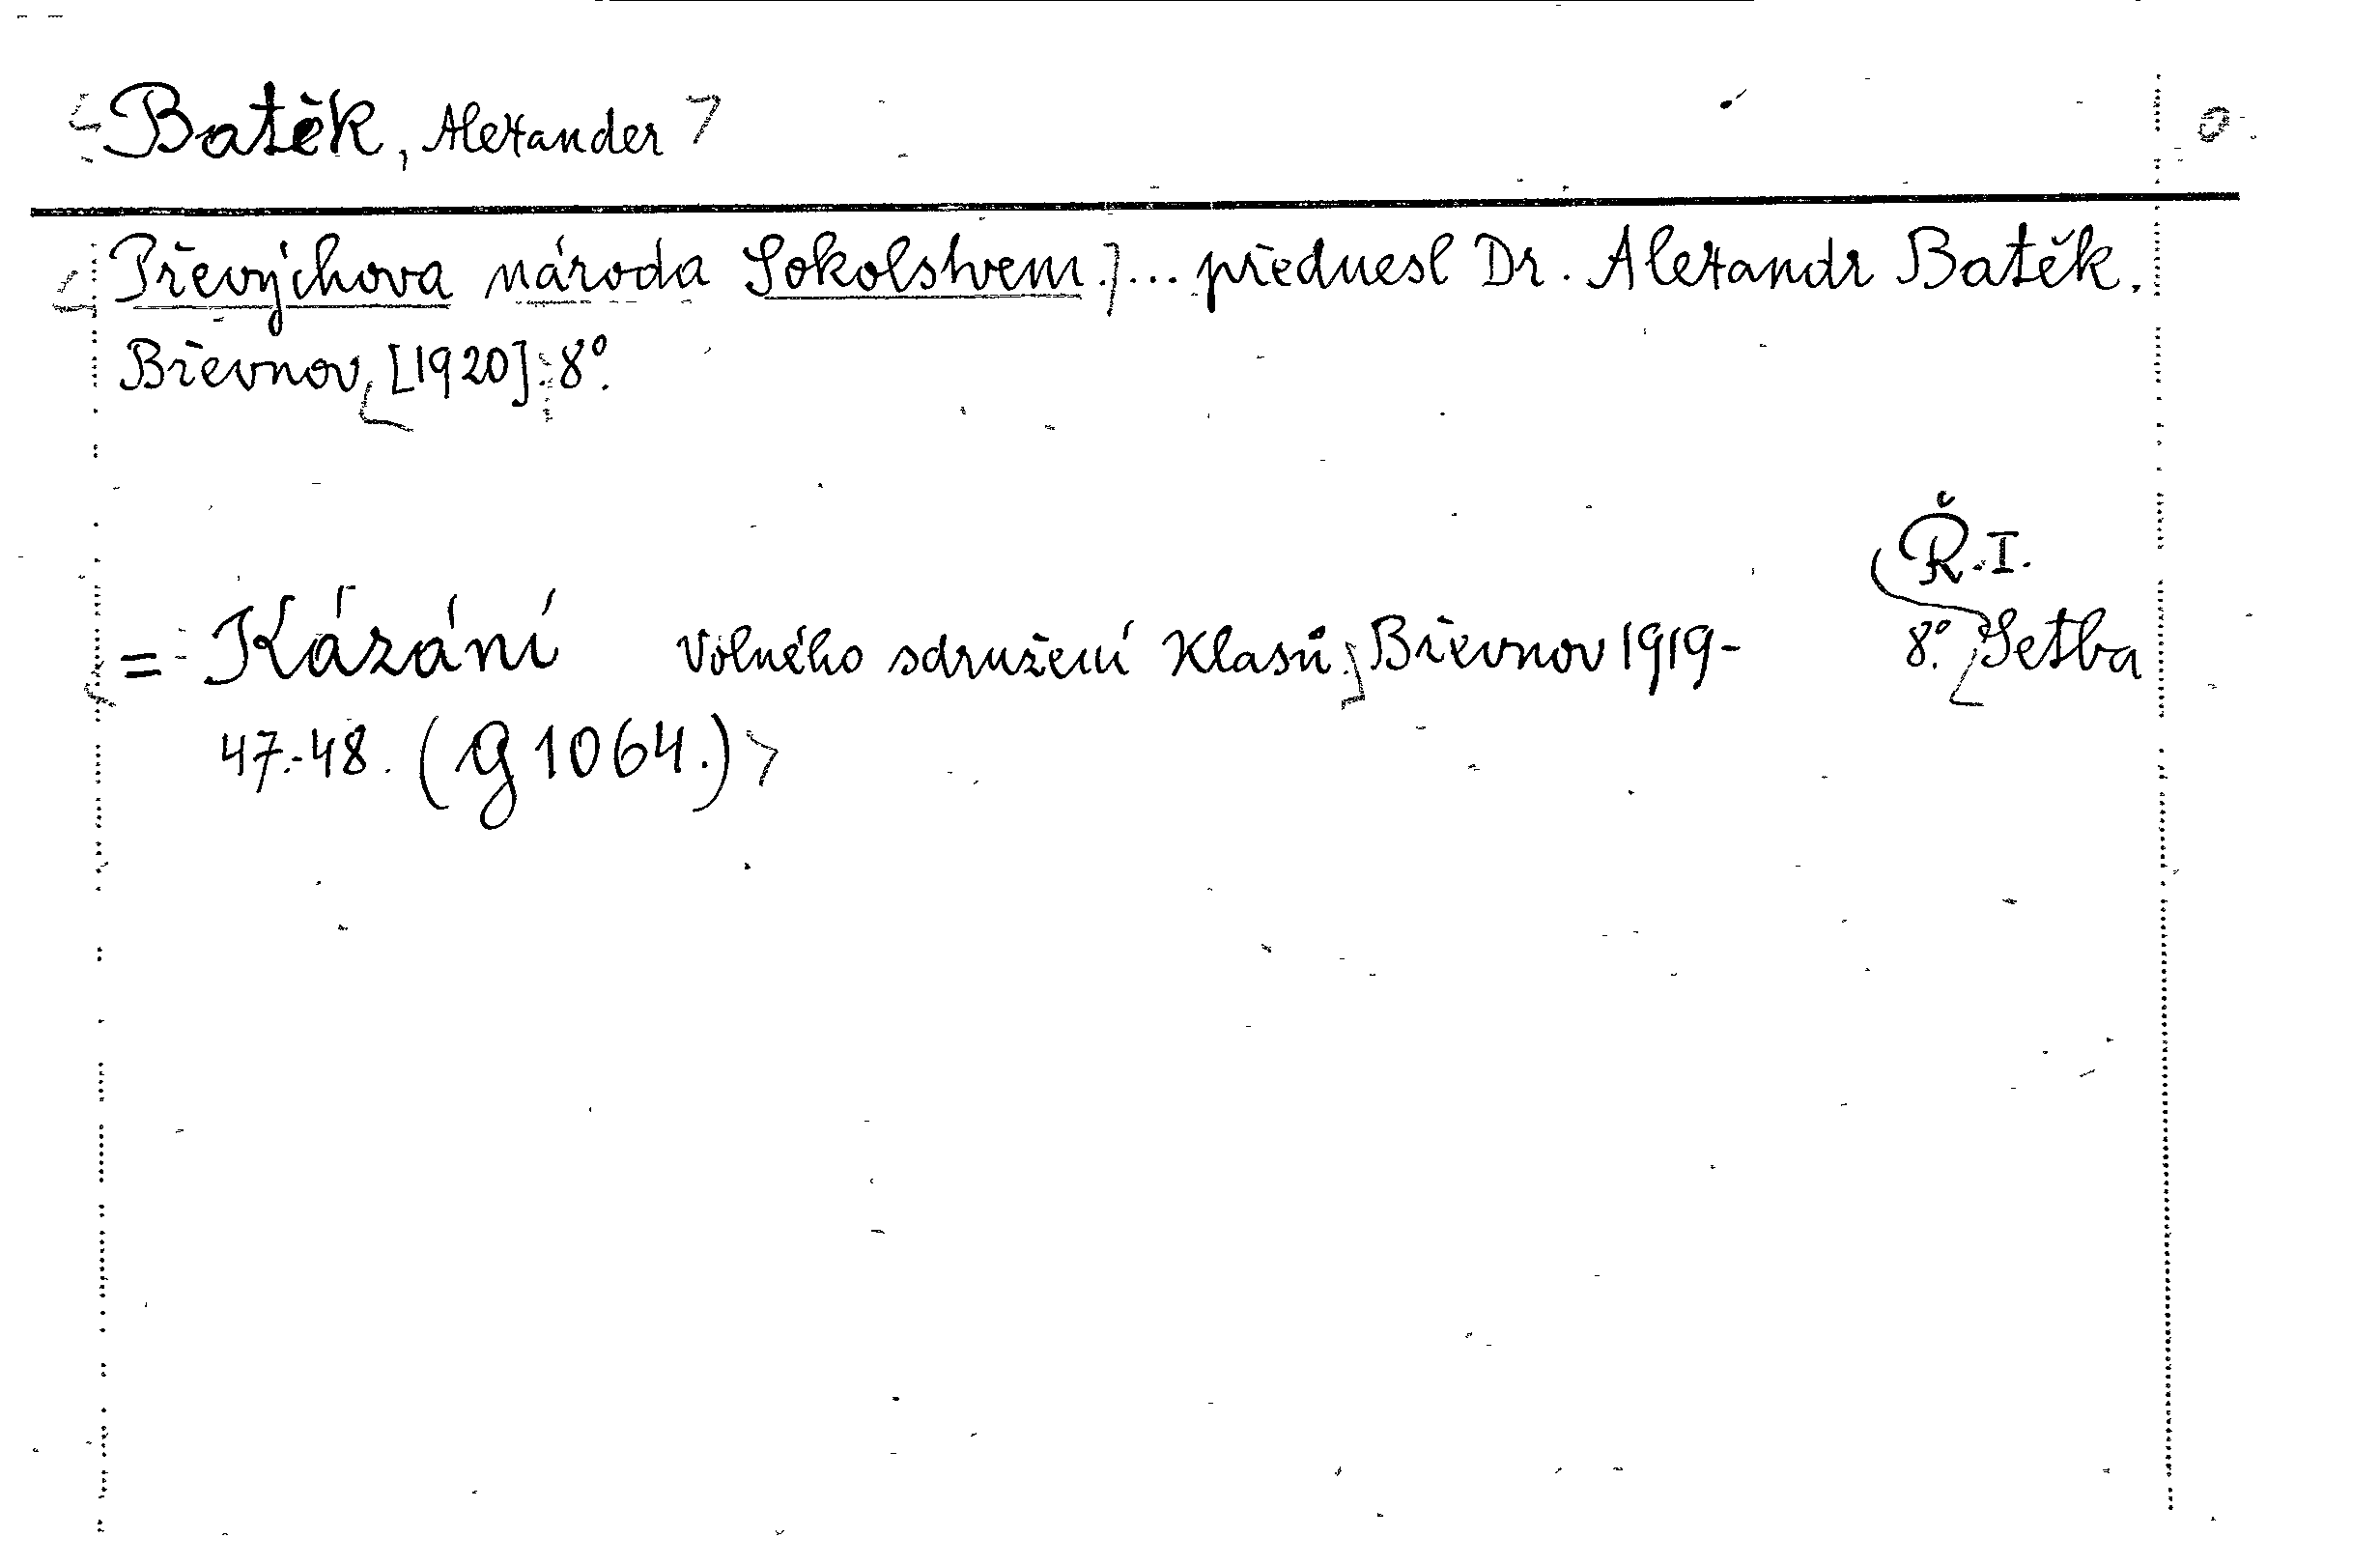 Batěk, Alexander
Převýchova národa Sokolstvem.] ... přednesl Dr. Alexandr Batěk.
Břevnov, [1920]. 8°.
Ř. I.
= Kázání Volného sdružení Klasů. Břevnov 1919- 8°. Setba
47.-48. (G 1064.)